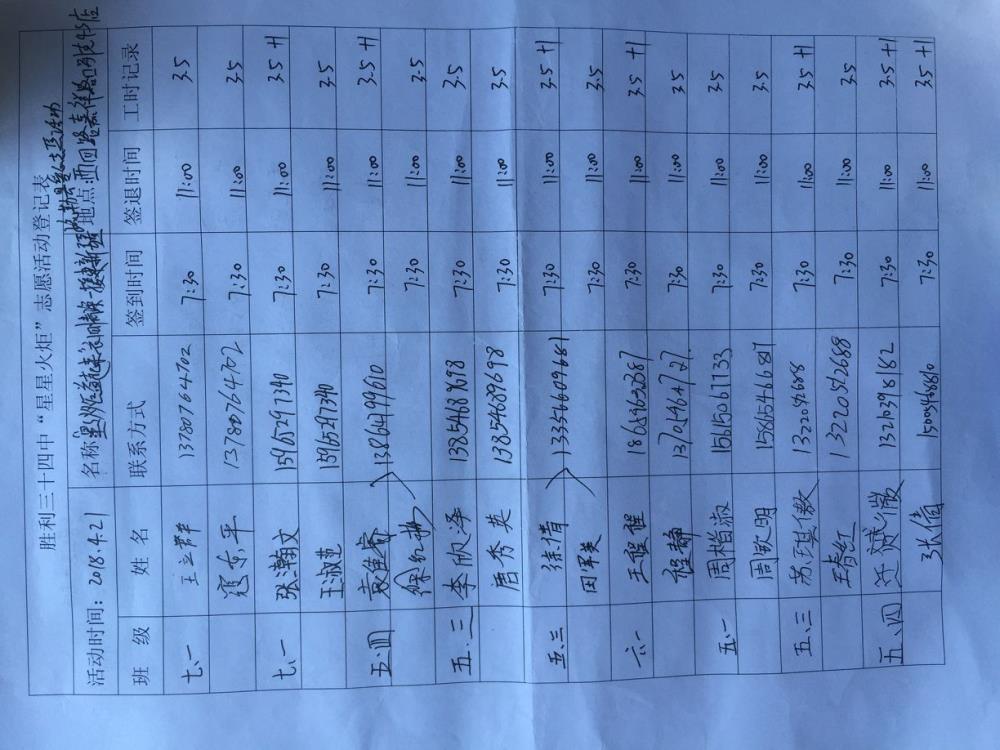 胜利三十四中“星星火炬”志愿活动登记表
活动时间：2018.4.21 名称 地点：西四路
班 级 姓 名 联系方式 签到时间 签退时间 工时记录
七.一 13780764702 7:30 11:00 3.5
寇东平 13780764702 7:30 11:00 3.5
七.一 张瀚文 15965297340 7:30 11:00 3.5 +1
王淑苑 15965297340 7:30 11:00 3.5
五.四 13864199610 7:30 11:00 3.5 +1
徐红梅 7:30 11:00 3.5
五.三 李欣泽 13854689698 7:30 11:00 3.5
唐秀英 13854689698 7:30 11:00 3.5
五.三 徐倩 13356609681 7:30 11:00 3.5 +1
田军英 7:30 11:00 3.5
六.一 王程程 7:30 11:00 3.5 +1
程静 7:30 11:00 3.5
五.一 周楷淑 15615061733 7:30 11:00 3.5
周钦明 15865466787 7:30 11:00 3.5
五.三 苏琪傲 7:30 11:00 3.5 +1
王春红 13220812688 7:30 11:00 3.5
五.四 13210398182 7:30 11:00 3.5 +1
张倩 15003168810 7:30 11:00 3.5 +1